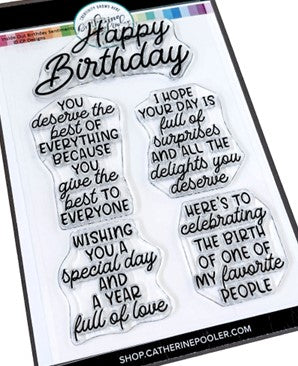 Inside Out Birthday Sentiments
Happy
Birthday
YOU
deserve the
best OF
EVERYTHING
BECAUSE
YOU
give the
BEST TO
EVERYONE
I HOPE
YOUR DAY IS
full of
surprises
AND ALL THE
delights you
deserve
WISHING
YOU A
special day
AND
A YEAR
full of love
HERE'S TO
celebrating
THE BIRTH
OF ONE OF
MY favorite
PEOPLE
SHOP.CATHERINEPOOLER.COM